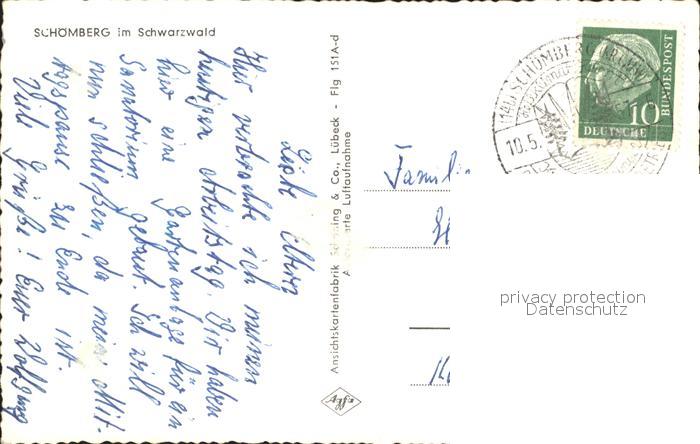 SCHÖMBERG im Schwarzwald
Liebe Eltern
Hier verbrachte ich meinen
heutigen Arbeitstag. Wir haben
hier eine Gartenanlage für ein
Sanatorium gebaut. Ich will
nun schließen, da meine Mit-
tagspause zu Ende ist.
Viele Grüße! Euer Wolfgang
Ansichtskartenfabrik Schöning & Co., Lübeck - Flg 151A-d
Luftaufnahme
Agfa
Famili
SCHÖMBERG
10.5.
10
DEUTSCHE
BUNDESPOST
privacy protection
Datenschutz